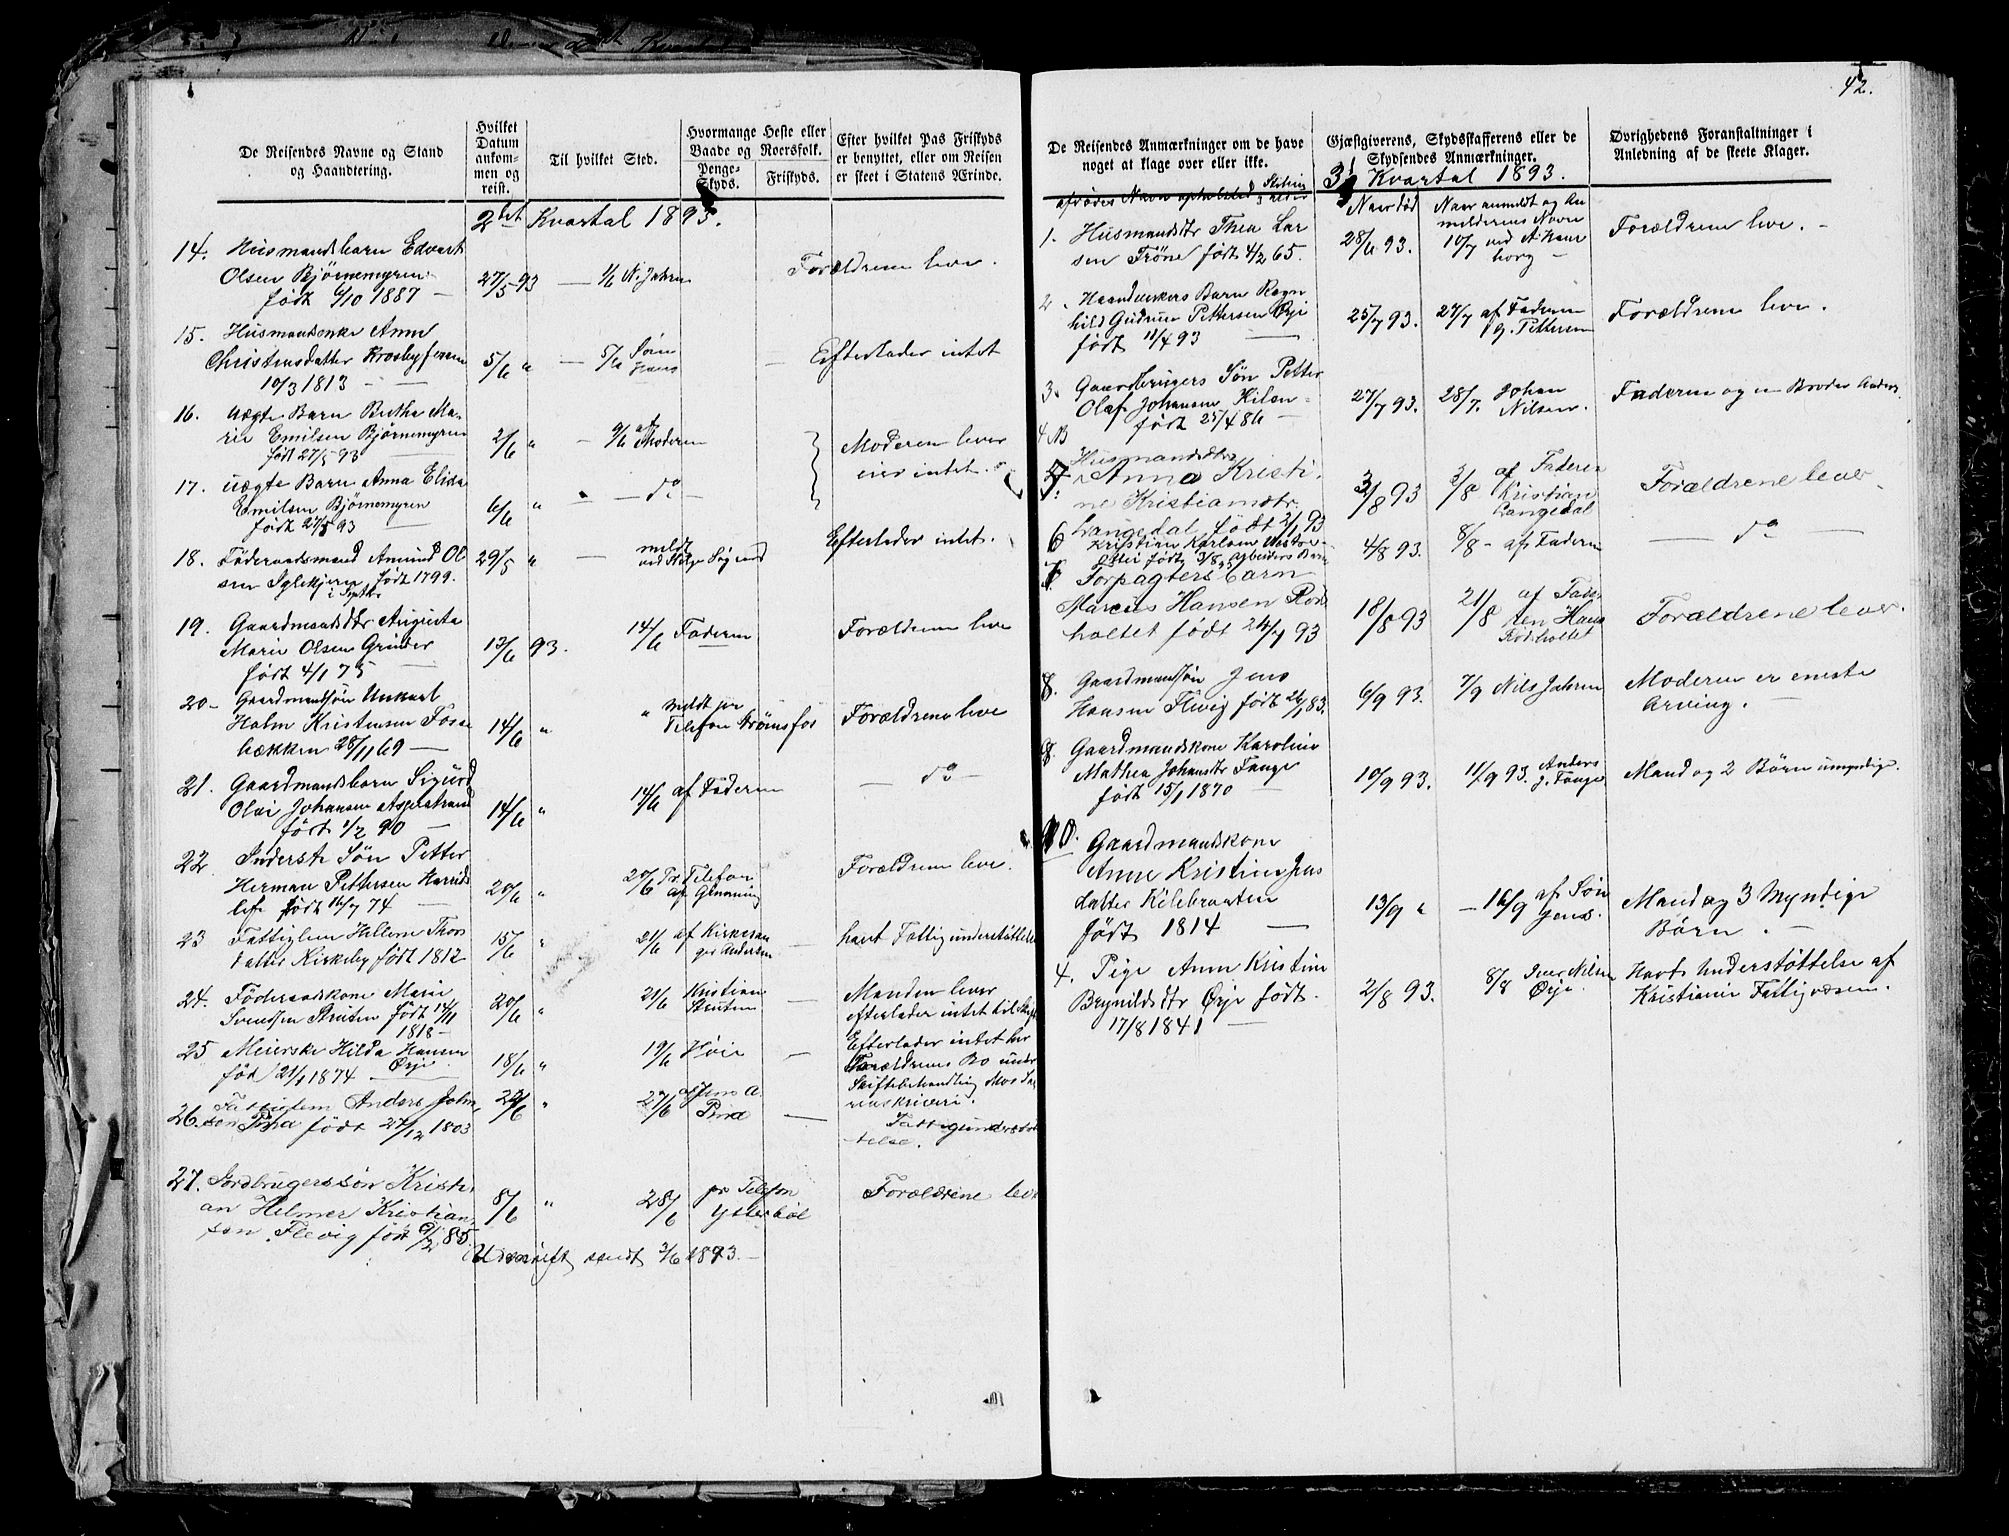 De Reisendes Navne og Stand
og Haandtering.
Hvilket
Datum
ankom-
men og
reist.
Til hvilket Sted.
Hvormange Heste eller
Baade og Roersfolk.
Penge-
Skyds.
Friskyds.
Efter hvilket Pas Friskyds
er benyttet, eller om Reisen
er skeet i Statens Ærinde.
2det Kvartal 1893.
14. Husmandsbarn Edvart
Olsen Bjørnemyren
født 6/10 1887 27/5 93 1/6 N. Jahren Forældrene leve.
15. Husmandsenke Anne
Christensdatter Krosbyferren 5/6 " 5/6 Søn Hans Efterlader intet
10/3 1813
16. Uægte Barn Berthe Ma-
rie Emilsen Bjørnemyren 2/6 " 9/6 af Moderen Moderen lever
født 27/5 93 eier intet.
17. uægte Barn Anna Elida
Emilsen Bjørnemyren 6/6 " do
født 27/5 93
18. Føderaadsmand Amund Ol-
sen 29/5 " meldt ved Efterlader intet.
født 1799. i Septbr
19. Gaardmandsdtr Augusta
Marie Olsen Grinder 13/6 93. 14/6 Faderen Forældrene leve
født 4/1 75
20. Gaardmandssøn
Holm Kristensen Fosse-
bækken 28/11 69 14/6 " " meldt pr Telefon Strømsfos Forældrene leve
21. Gaardmandsbarn Sigurd
Olai Johansen Aspestrand 14/6 " 14/6 af Faderen do
født 1/2 90
22. Inderste Søn Petter
Herman Pettersen 20/6 " 20/6 Pr. Telefon af Forældrene leve.
født 16/7 74
23 Fattiglem Hellene Thors-
datter Kirkeby født 1812 15/6 " 21/6 af Kirkesan-
ger Andersen havt Fattigunderstøttelse
24. Føderaadskone Marie
Svendsen Struten født 14/11
1818 20/6 " 21/6 Kristian
Struten Manden lever
efterlader intet til Skifte
25 Meierske Hilda Hansen
Ørje
fød 21/1 1874 18/6 " 19/6 Høie Efterlader intet her
Forældrenes Bo under
Skiftebehandling Mos So-
renskriveri.
26. Fattiglem Anders John-
sen født 27/12 1803 22/6 " 27/6 af Jens A. Fattigunderstøt-
telse.
27. Jordbrugerssøn Kristi-
an Helmer Kristian-
sen Flevig født 9/2 85. 8/6 " 28/6 pr Telefon
Ysterbøl Forældrene leve
Udskrift sendt 3/6 1893.
42.
De Reisendes Anmærkninger om de have
noget at klage over eller ikke.
Gjæstgiverens, Skydsskafferens eller de
Skydsendes Anmærkninger.
Øvrighedens Foranstaltninger i
Anledning af de skeete Klager.
3die Kvartal 1893.
afdødes Navn opholdsted Stilling
& alder
Naar død
Naar anmeldt og An-
melderens Navn
1. Husmandsdtr Thea Lar-
sen Trøne født 4/2 65. 28/6 93. 10/7 ved A. Kaur-
borg Forældrene leve.
2. Haandverkers Barn Ragn-
hild Gudrun Pettersen Ørje
født 11/4 93 25/7 93. 27/7 af Faderen
G. Pettersen Forældrene leve.
3. Gaardbrugers Søn Petter
Olaf Johansen Kilen
født 25/4 86 27/7 93. 28/7. Johan
Nilsen. Faderen og en Broder Anders
4 NB
5. Husmandsdtr
Anna Kristi-
ne Kristiansdtr
Langedal født 2/1 93 3/8 93 3/8 af Faderen
Kristian
Langedal Forældrene lever
6 Kristian Karlsen
født Arbeiders Barn 4/8 93. 8/8 - af Faderen do
7. Forpagters barn
Marius Hansen Rød-
holtet født 24/7 93 18/8 93 21/8 af Fade-
ren Hans
Rødholtet Forældrene lever.
8. Gaardmandssøn Jens
Hansen Flevig født 26/1 83. 6/9 93. 7/9 Nils Jahren Moderen er eneste
Arving.
9. Gaardmandskone Karoline
Mathea Johansdtr Tange
født 15/1 1870 10/9 93. 11/9 93. Anders
J. Tange Mand og 2 Børn umyndige.
10. Gaardmandskone
Anne Kristine Jens-
datter Kilebraaten
født 1814 13/9 " 16/9 af Søn
Jens. Mand og 3 Myndige
Børn.
4. Pige Anne Kristine
Brynildsdtr Ørje født
17/8 1841 2/8 93. 8/8 Iver Nilsen
Ørje. Havt Understøttelse af
Kristiania Fattigvæsen.